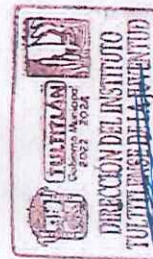 TULTITLÁN
Gobierno Municipal
2022 2024
DIRECCIÓN DEL INSTITUTO
TULTITLENSE DE LA JUVENTUD